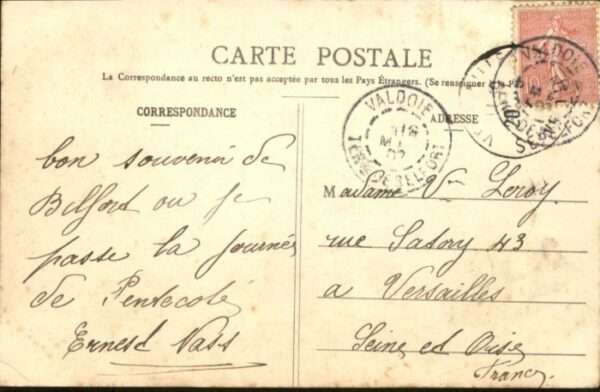 CARTE POSTALE
La Correspondance au recto n'est pas acceptée par tous les Pays Étrangers. (Se renseigner à la
CORRESPONDANCE
ADRESSE
VALDOIE
TERRE DE BELFORT
bon souvenir de
Belfort ou je
passe la journée
de Pentecoté
Ernest
Madame Vve Leroy
rue Satory 43
a Versailles
Seine et Oise
France